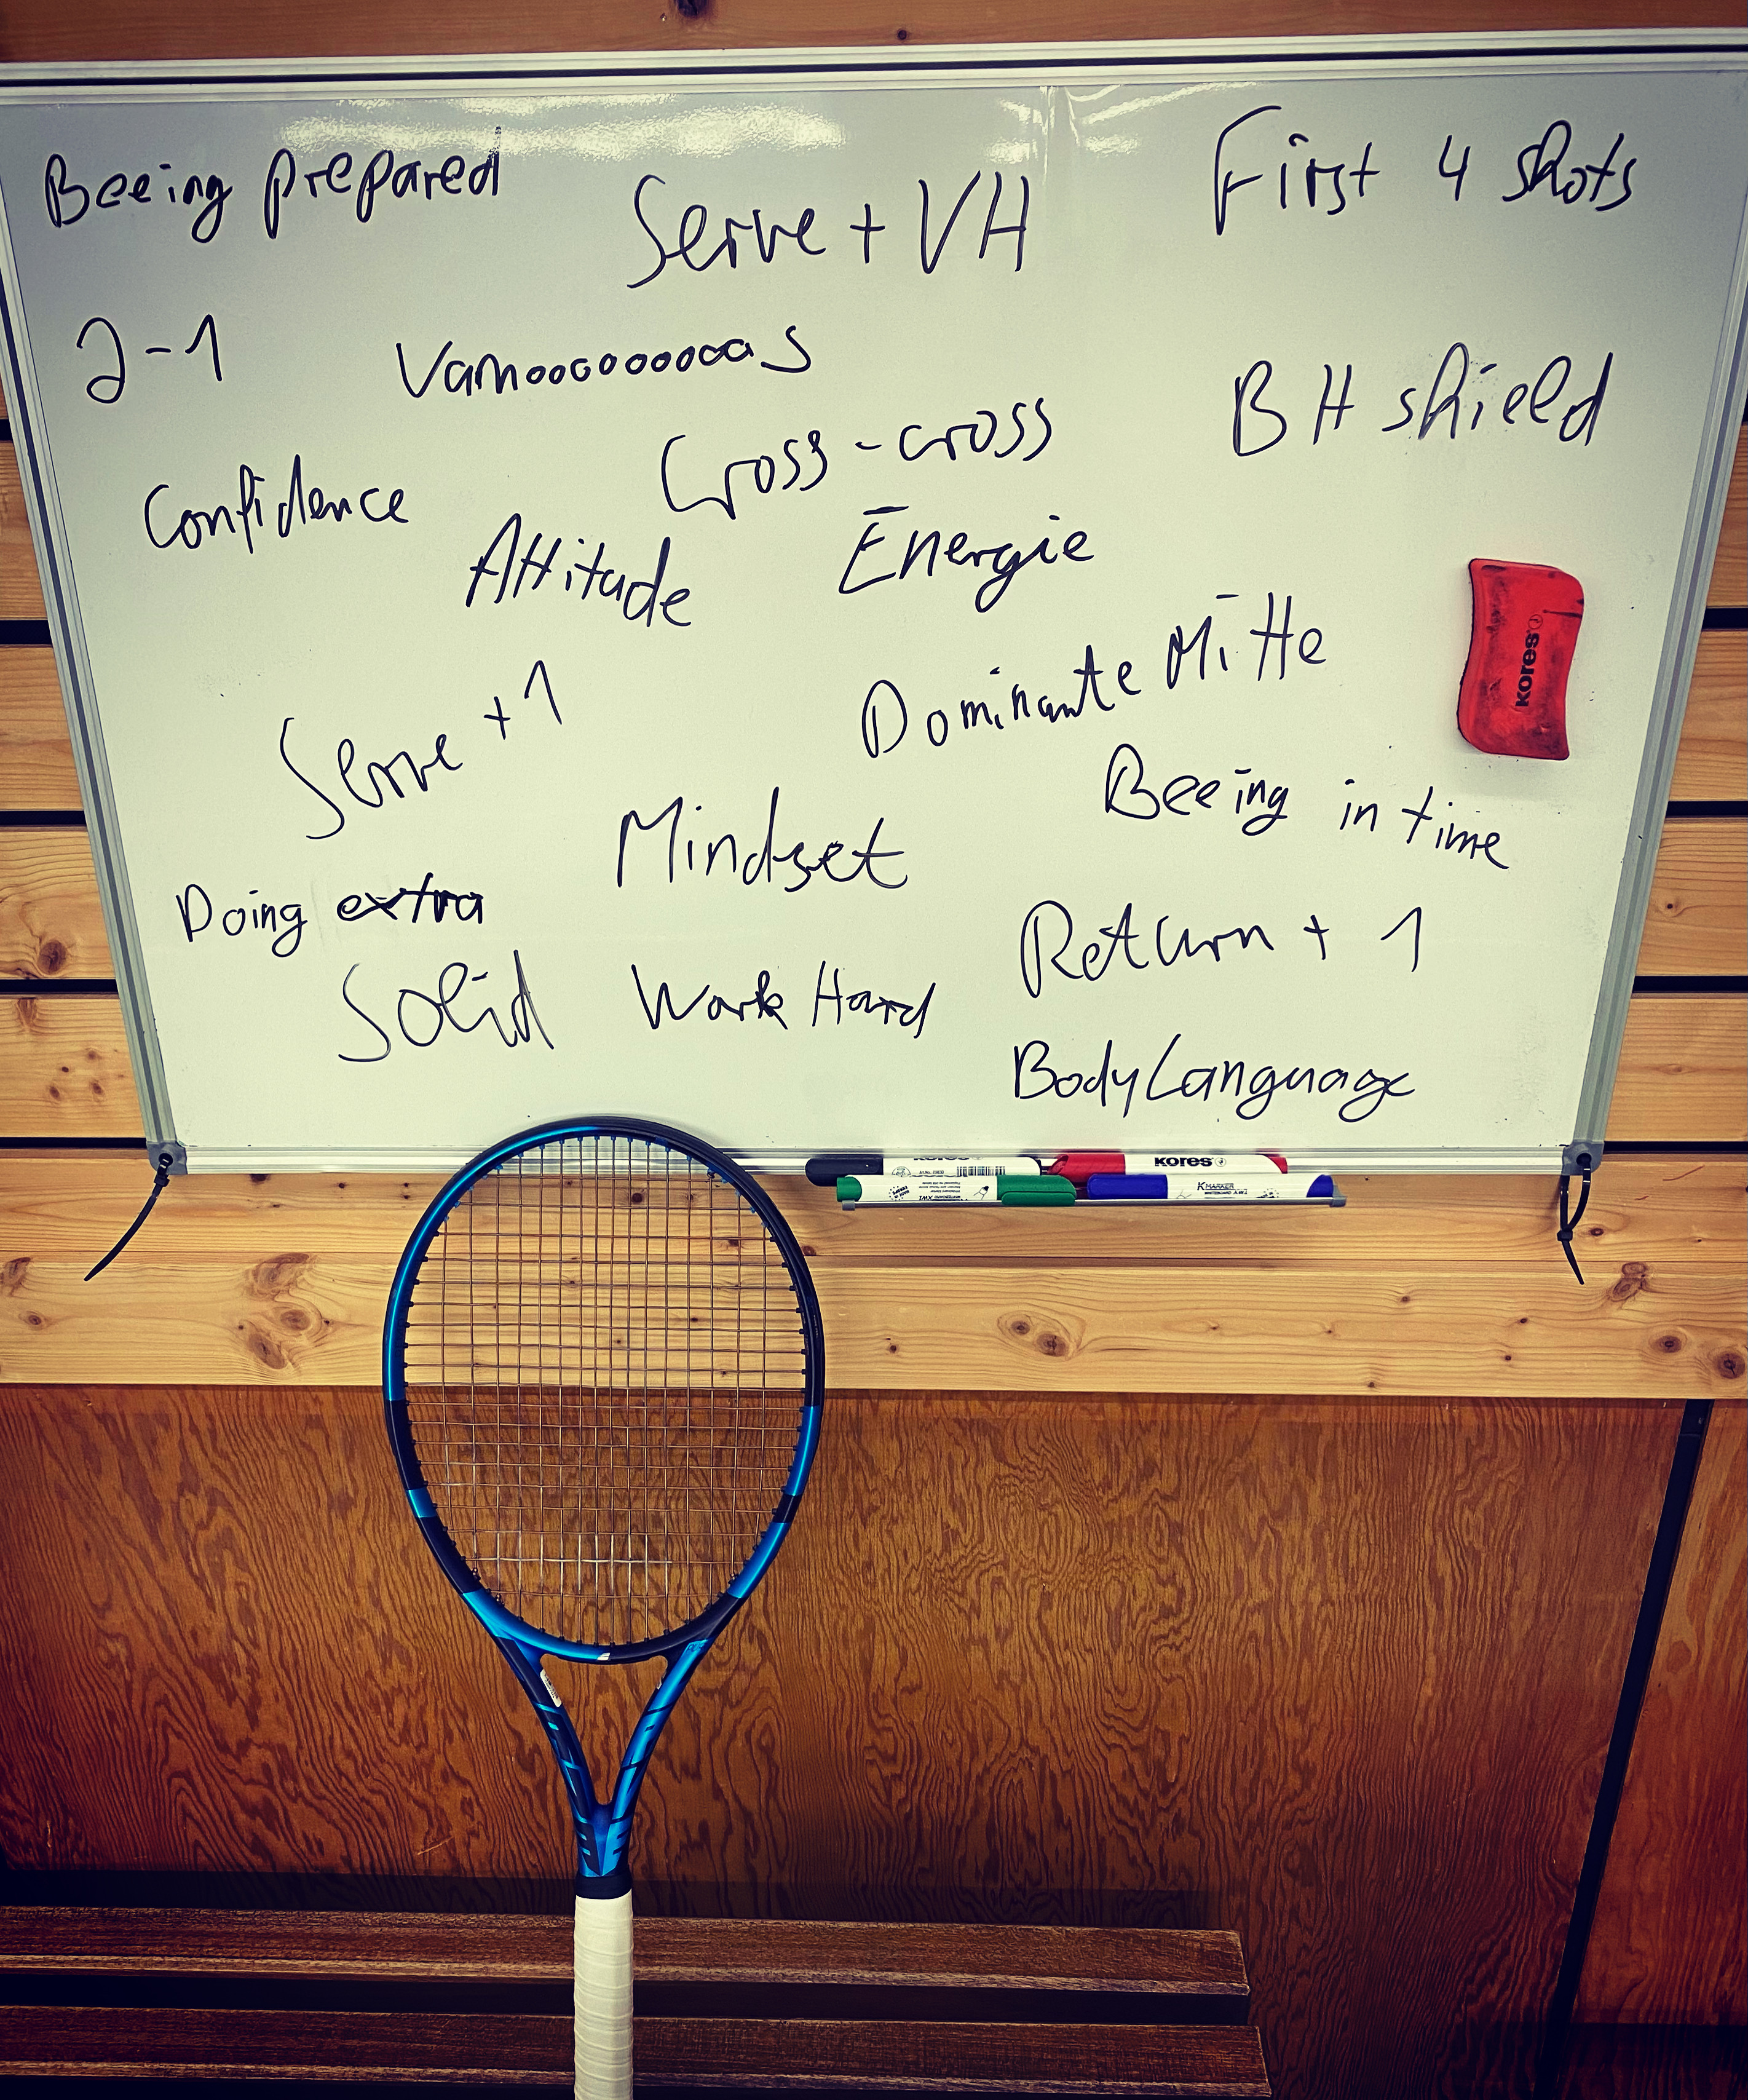 Beeing prepared
Serve + VH
First 4 shots
2-1
Vamoooooooooos
BH shield
Cross-cross
Confidence
Attitude
Energie
Dominante Mitte
kores
Serve +1
Beeing in time
Mindset
Doing extra
Return + 1
Solid
Work Hard
Body Language
kores
kores
K MARKER